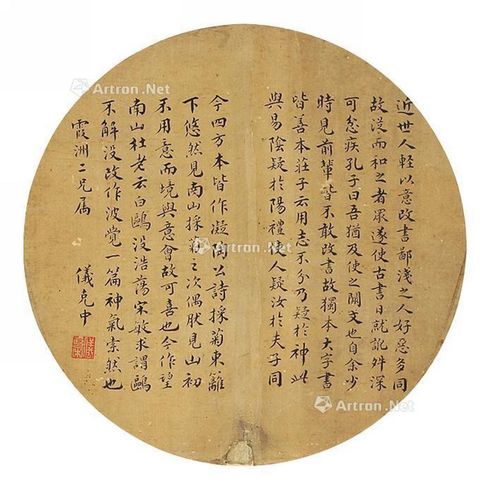 近世人輕以意改書鄙淺之人好惡多同
故從而和之者眾遂使古書日就訛舛深
可忿疾孔子曰吾猶及使之闕文也自余少
時見前輩皆不敢改書故獨本大字書
皆善本莊子云用志不分乃疑於神此
與易陰疑於陽禮使人疑汝於夫子同
今四方本皆作凝陶公詩採菊東籬
下悠然見南山採菊之次偶然見山初
不用意而境與意會故可喜也今作望
南山杜老云白鷗沒浩蕩宋敏求謂鷗
不解沒改作波覺一篇神氣索然也
霞洲二兄屬
儀克中
Artron.Net
Artron.Net
Artron.Net
Artron.Net